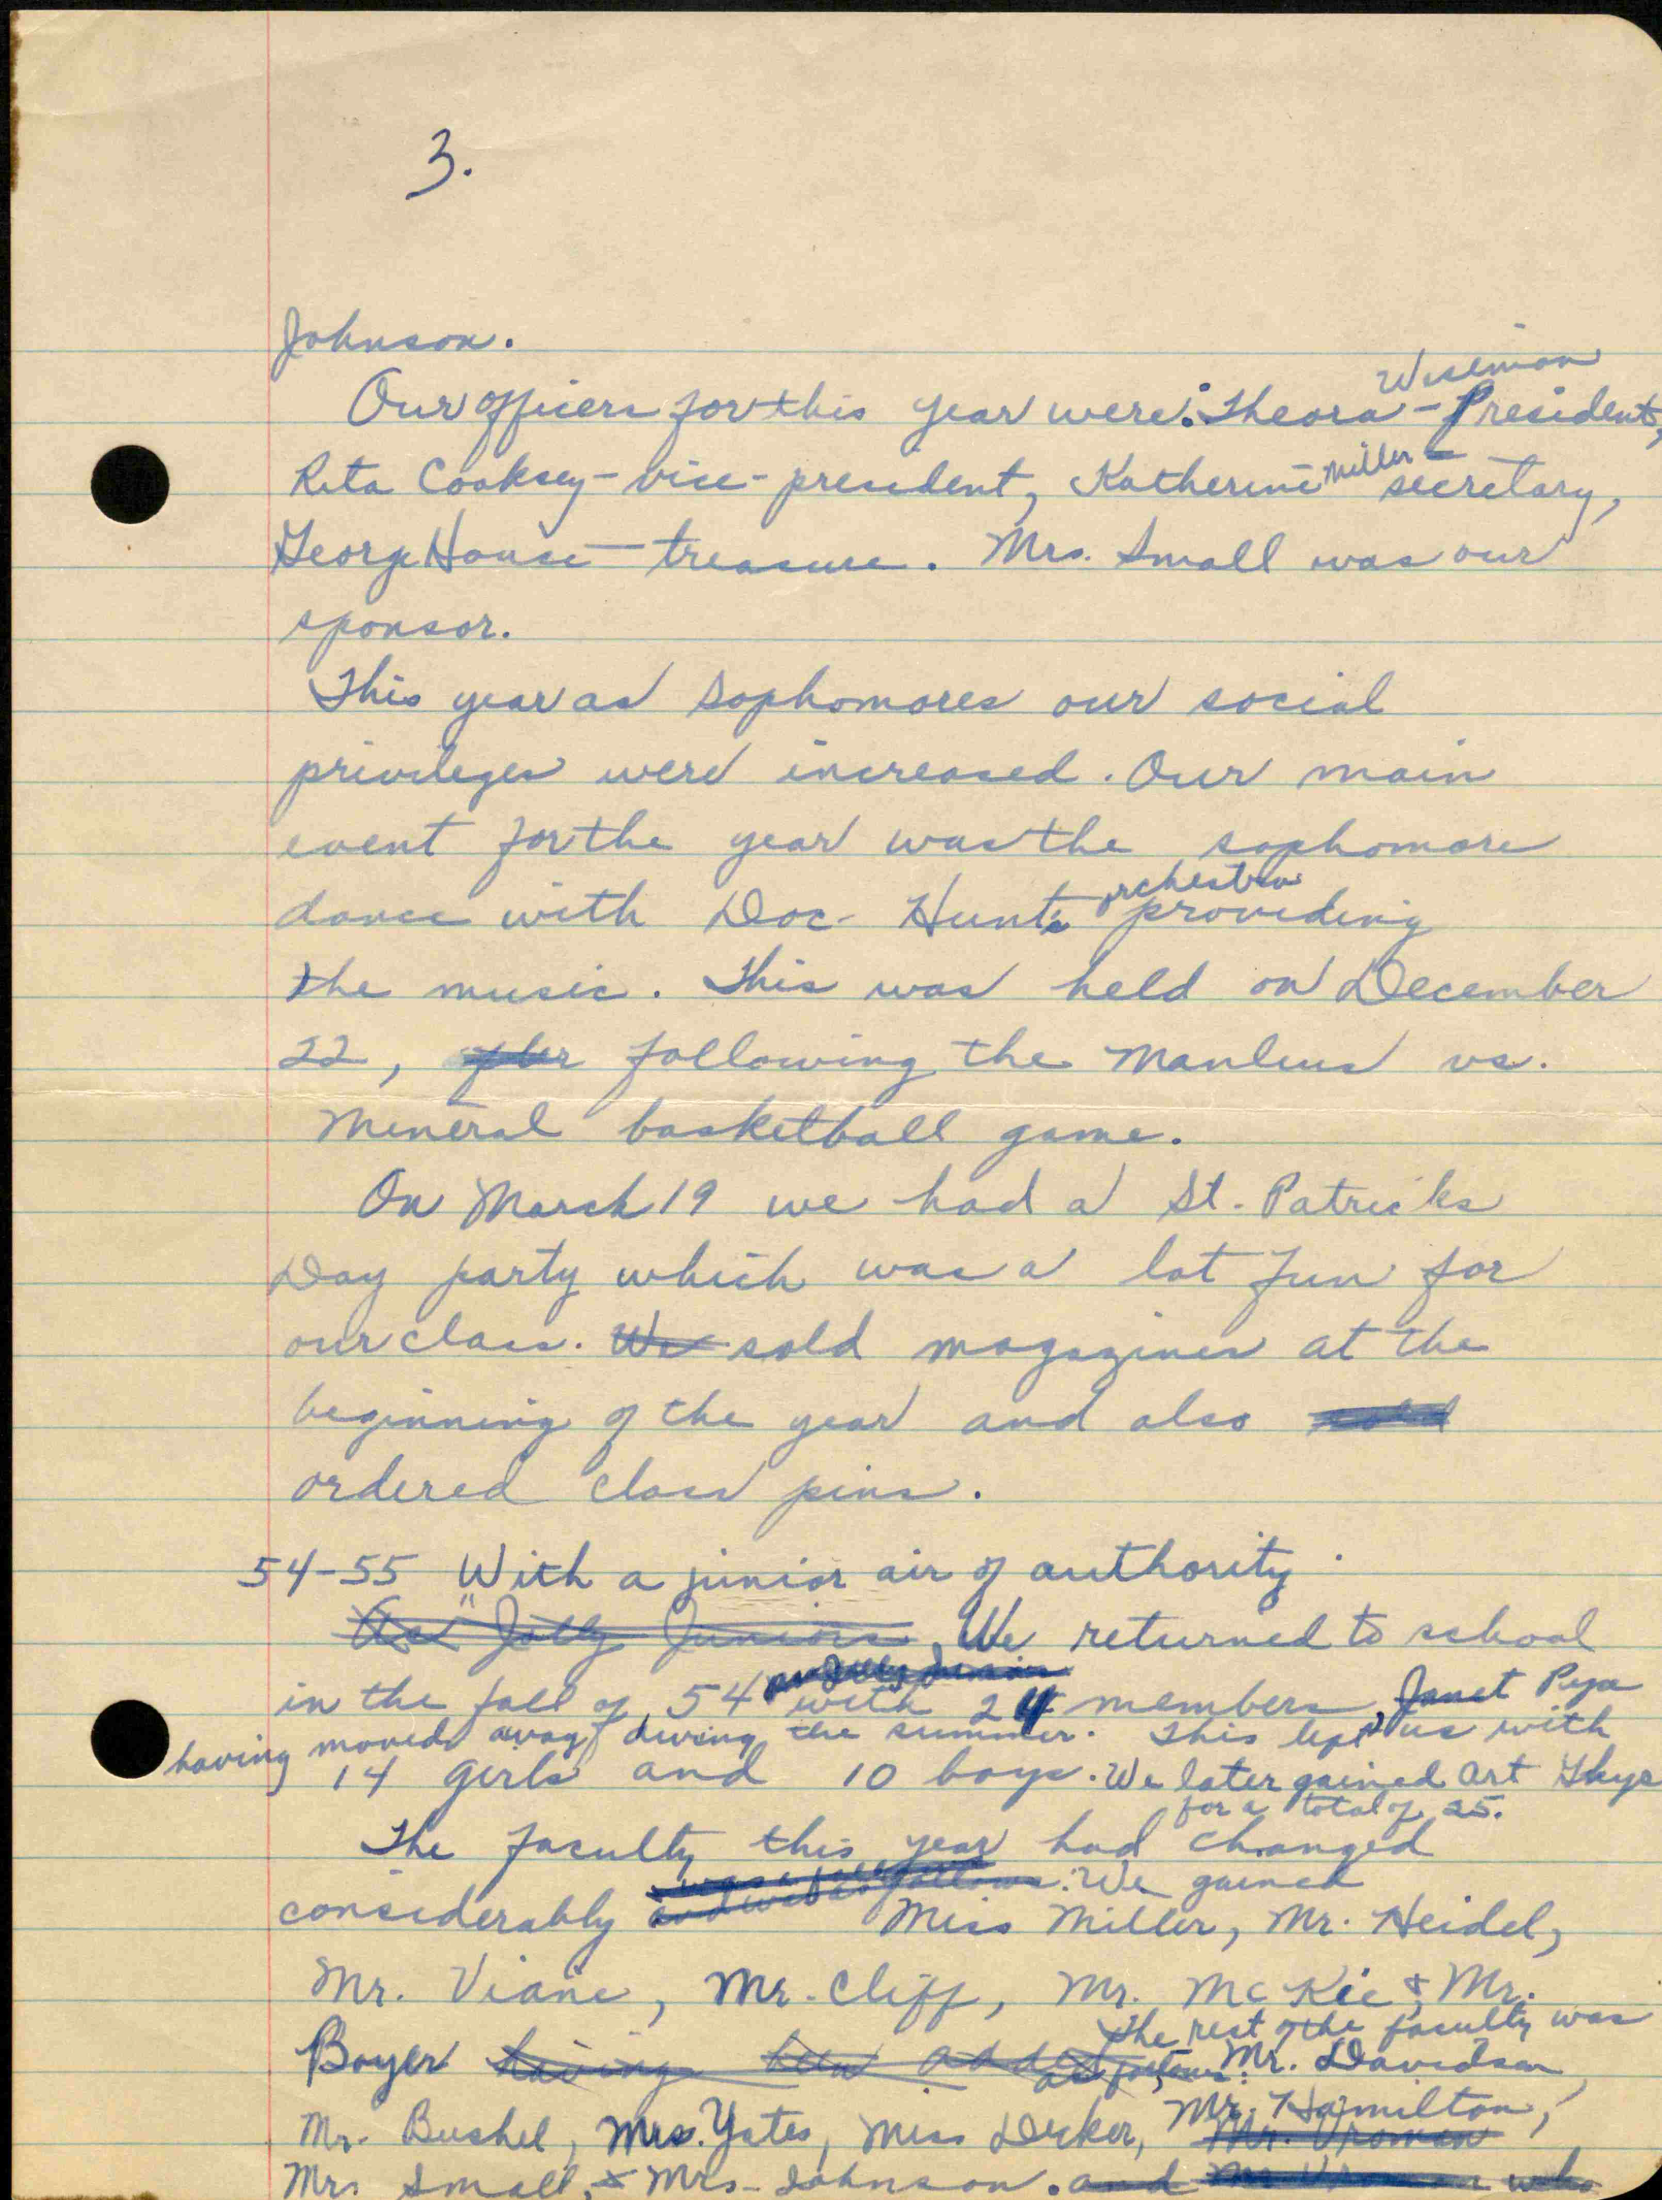 3.
Johnson.
Wiseman
Our officers for this year were: Theora - President,
Rita Cooksey - vice-president, Katherine Miller - secretary,
George House - treasure. Mrs. Small was our
sponsor.
This year as sophomores our social
privileges were increased. Our main
event for the year was the sophomore
dance with Doc. Hunt's orchestra providing
the music. This was held on December
22, after following the Manlius vs.
Mineral basketball game.
On March 19 we had a St. Patricks
Day party which was a lot fun for
our class. We sold magazines at the
beginning of the year and also sold
ordered class pins.
54-55 With a junior air of authority
As "Jolly Juniors, We returned to school
as Jolly Juniors
in the fall of 54 with 24 members, Janet Pyx
having moved away during the summer. This left us with
14 girls and 10 boys. We later gained Art Thys
for a total of 25.
The faculty this year had changed
considerably and was as follows: We gained
Miss Miller, Mr. Heidel,
Mr. Viane, Mr. Cliff, Mr. McKie & Mr.
The rest of the faculty was
Boyer having been added as follows: Mr. Davidson,
Mr. Hamilton,
Mr. Bushel, Mrs. Yates, Miss Decker, Mr. Vroman
Mrs Small, & Mrs. Johnson. and Mr Vroman who